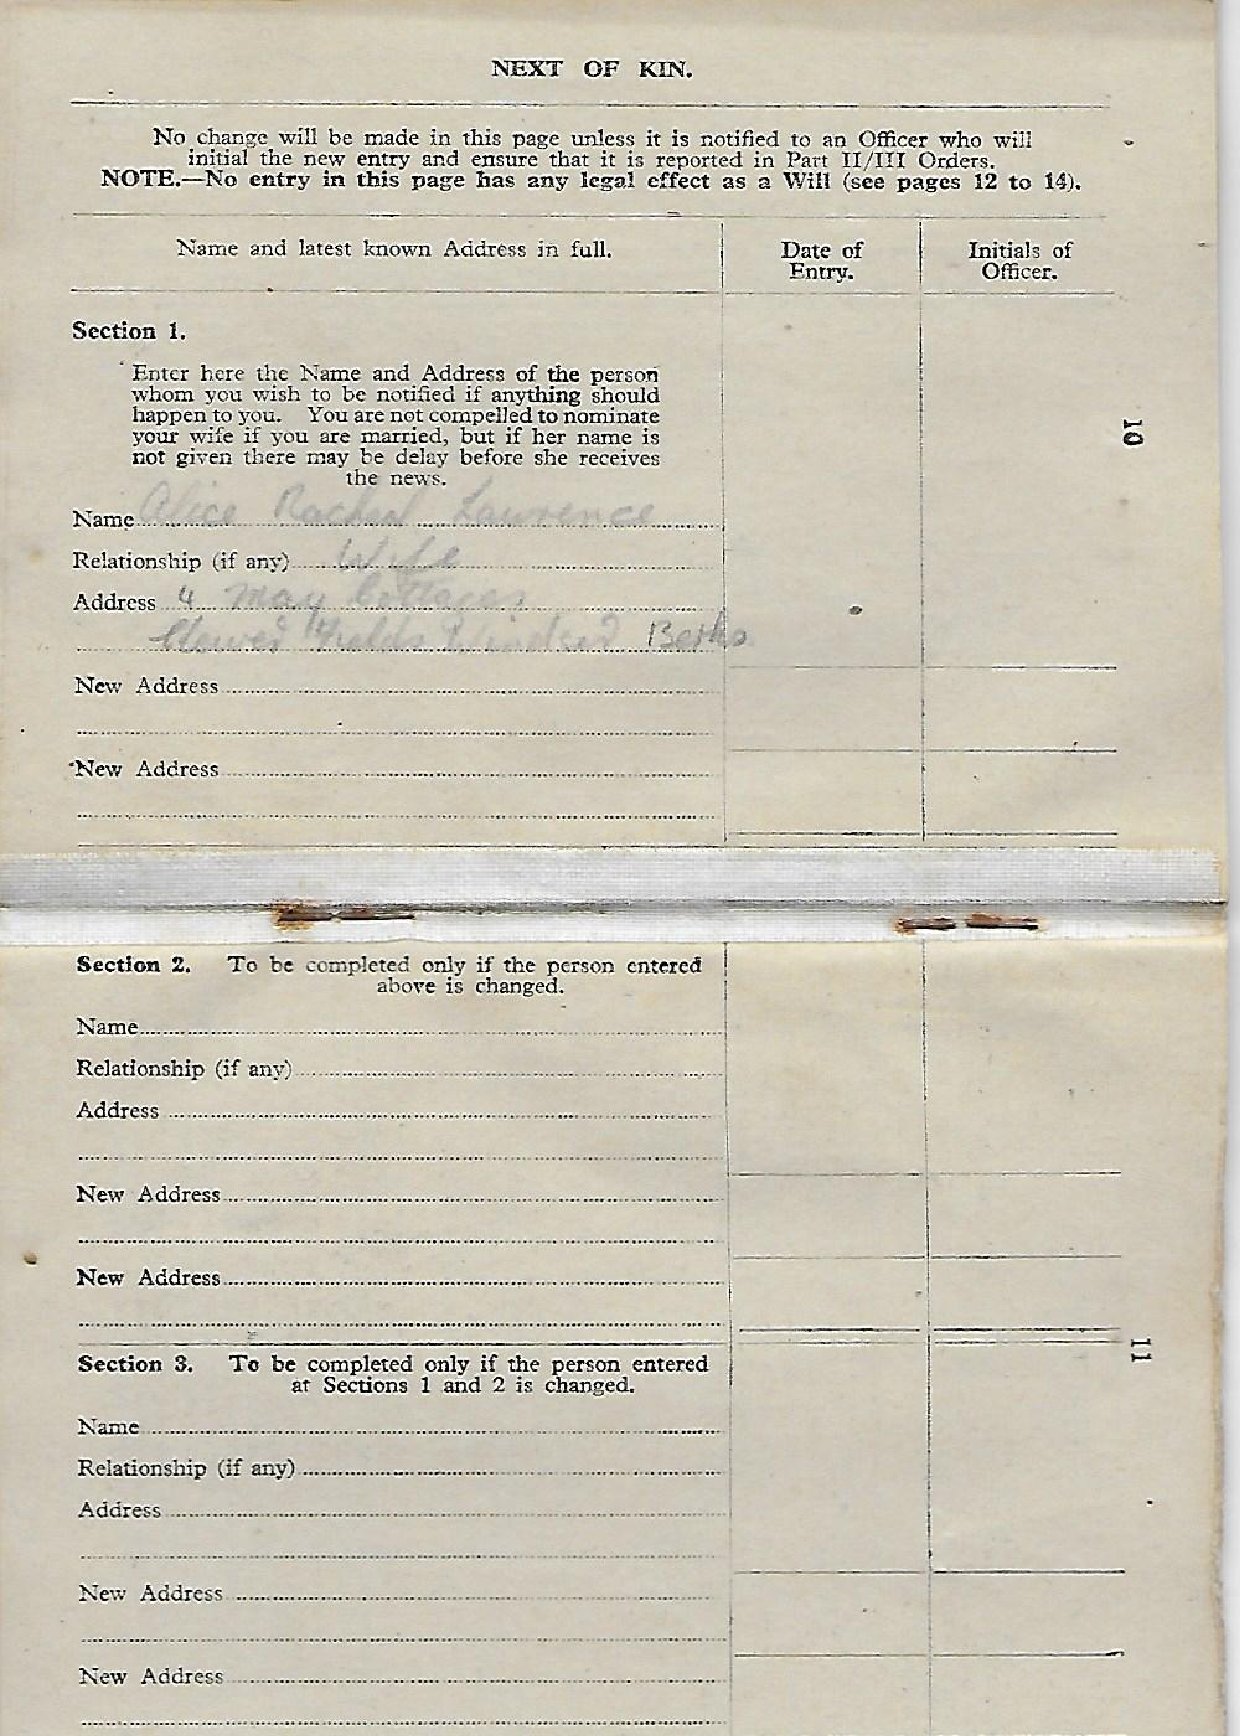 NEXT OF KIN.
No change will be made in this page unless it is notified to an Officer who will
initial the new entry and ensure that it is reported in Part II/III Orders.
NOTE.—No entry in this page has any legal effect as a Will (see pages 12 to 14).
Name and latest known Address in full.
Date of
Entry.
Initials of
Officer.
Section 1.
Enter here the Name and Address of the person
whom you wish to be notified if anything should
happen to you. You are not compelled to nominate
your wife if you are married, but if her name is
not given there may be delay before she receives
the news.
10
Name Alice Rachel Lawrence
Relationship (if any) Wife
Address 4 May Cottages
Fields Windsor Berks
New Address
New Address
Section 2. To be completed only if the person entered
above is changed.
Name
Relationship (if any)
Address
New Address
New Address
11
Section 3. To be completed only if the person entered
at Sections 1 and 2 is changed.
Name
Relationship (if any)
Address
New Address
New Address